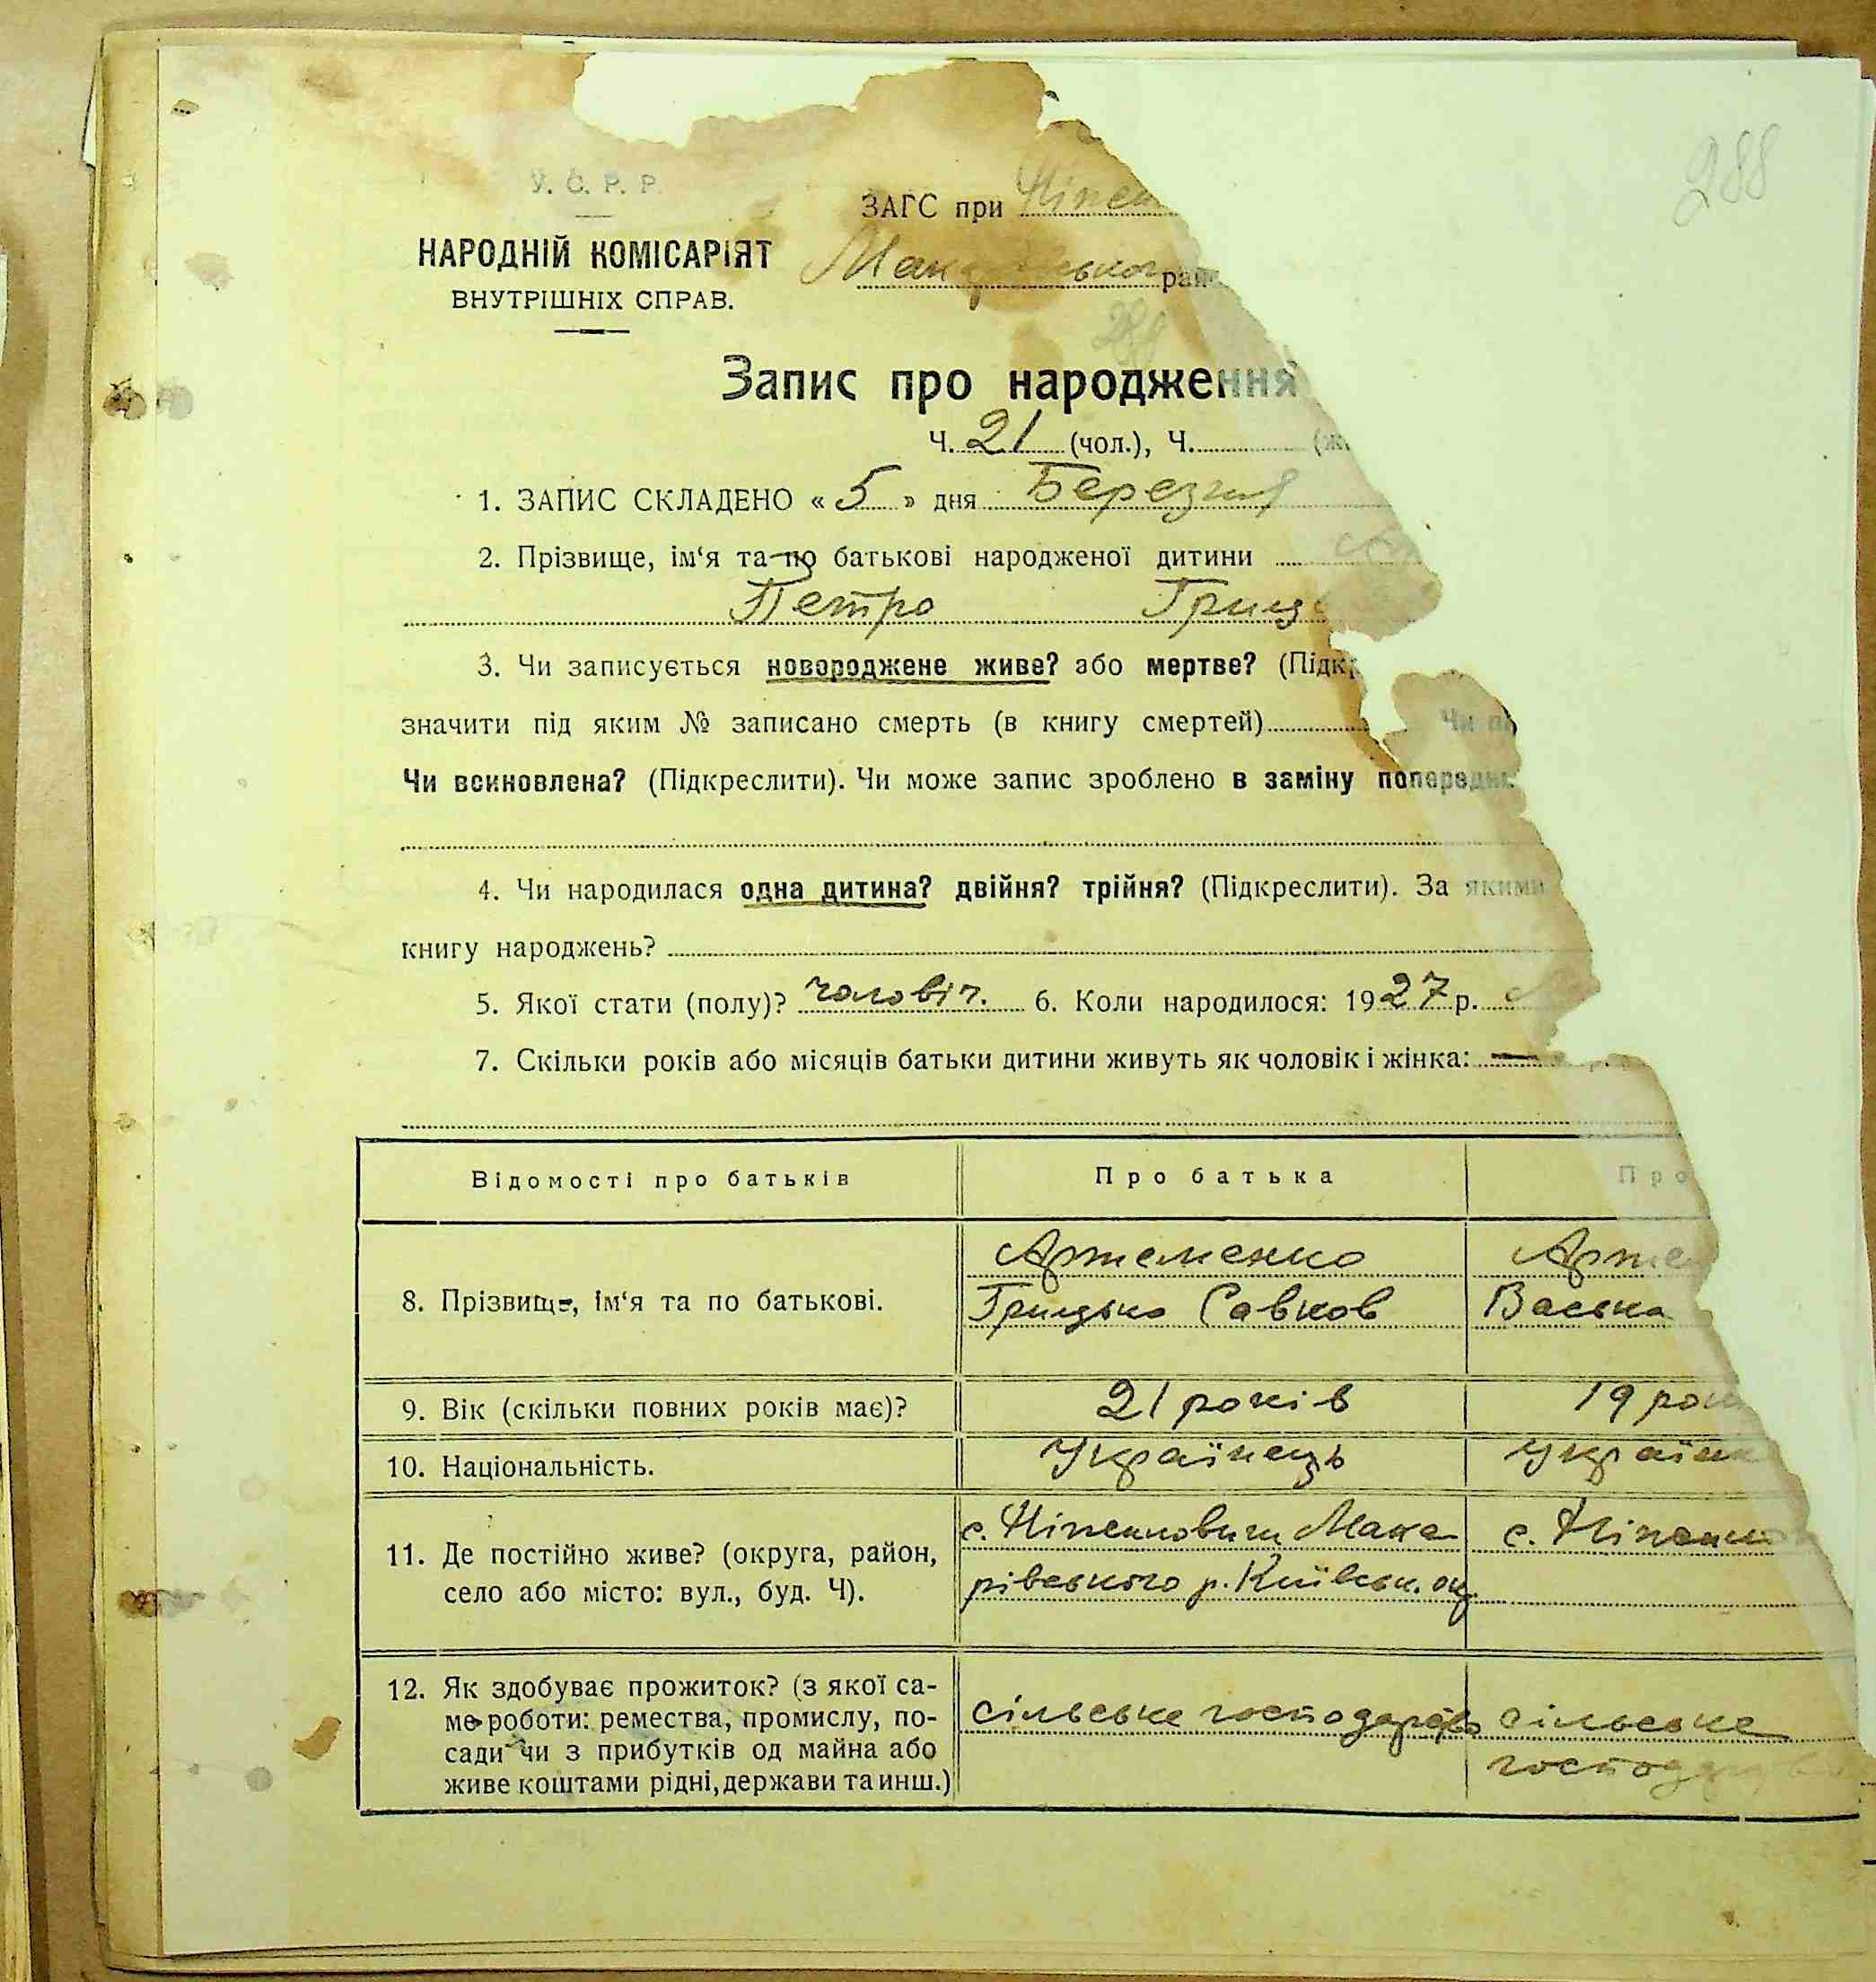 288
У. С. Р. Р.
ЗАГС при Ніпен
НАРОДНІЙ КОМІСАРІЯТ
ВНУТРІШНІХ СПРАВ.
рай
288
Запис про народження
Ч. 21 (чол.), Ч. (ж
1. ЗАПИС СКЛАДЕНО « 5 » дня Березня
2. Прізвище, ім‘я та по батькові народженої дитини Ар
Петро Гриць
3. Чи записується новороджене живе? або мертве? (Підкр
значити під яким № записано смерть (в книгу смертей) Чи п
Чи всиновлена? (Підкреслити). Чи може запис зроблено в заміну попередн
4. Чи народилася одна дитина? двійня? трійня? (Підкреслити). За якими
книгу народжень?
5. Якої стати (полу)? чоловіч. 6. Коли народилося: 1927 р.
7. Скільки років або місяців батьки дитини живуть як чоловік і жінка: —
Відомості про батьків Про батька Про
8. Прізвище, ім‘я та по батькові. Артеменко Грицько Савков Артем Васька
9. Вік (скільки повних років має)? 21 років 19 рок
10. Національність. Українець Україн
11. Де постійно живе? (округа, район, с. Ніпенковичи Мака- с. Ніпенко
село або місто: вул., буд. Ч). рівського р. Київськ. ок.
12. Як здобуває прожиток? (з якої са-
ме роботи: ремества, промислу, по- сільське господарство сільське
сади чи з прибутків од майна або господарс
живе коштами рідні, держави та инш.)